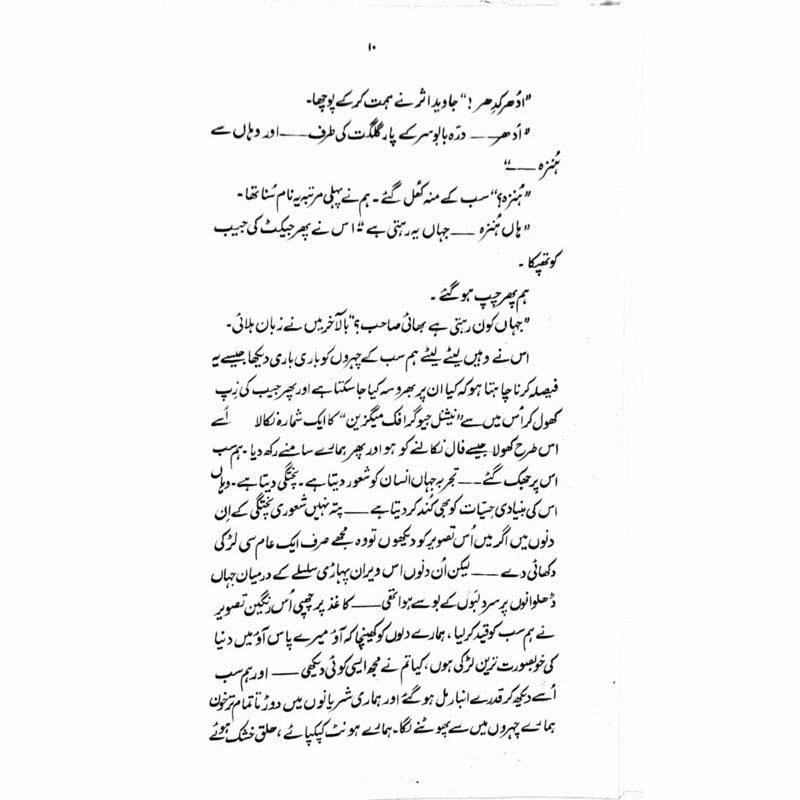 ۱۰
”اُدھر کدھر !“ جاوید اثر نے ہمت کر کے پوچھا۔
”اُدھر —— درّہ بابوسر کے پار گلگت کی طرف —— اور وہاں سے
ہُنزہ ——“
”ہُنزہ؟“ سب کے منہ کھُل گئے۔ ہم نے پہلی مرتبہ یہ نام سُنا تھا۔
”ہاں ہُنزہ —— جہاں یہ رہتی ہے“ اس نے پھر جیکٹ کی جیب
کو تھپکا ۔
ہم پھر چپ ہو گئے ۔
”جہاں کون رہتی ہے بھائی صاحب؟“ بالآخر میں نے زبان ہلائی۔
اس نے وہیں لیٹے لیٹے ہم سب کے چہروں کو باری باری دیکھا جیسے یہ
فیصلہ کرنا چاہتا ہو کہ کیا ان پر بھروسہ کیا جا سکتا ہے اور پھر جیب کی زِپ
کھول کر اُس میں سے ”نیشنل جیوگرافک میگزین“ کا ایک شمارہ نکالا اُسے
اس طرح کھولا جیسے فال نکالنے کو ہو اور پھر ہمارے سامنے رکھ دیا۔ ہم سب
اس پر جھک گئے —— تجربہ جہاں انسان کو شعور دیتا ہے۔ پختگی دیتا ہے۔ وہاں
اس کی بنیادی حِسّیات کو بھی کُند کر دیتا ہے —— پتہ نہیں شعوری پختگی کے اِن
دنوں میں اگر میں اُس تصویر کو دیکھوں تو وہ مجھے صرف ایک عام سی لڑکی
دکھائی دے —— لیکن اُن دنوں اس ویران پہاڑی سلسلے کے درمیان جہاں
ڈھلوانوں پر سرد لبوں کے بوسے ہوا تھی —— کاغذ پر چھپی اُس رنگین تصویر
نے ہم سب کو قید کر لیا ، ہمارے دلوں کو کھینچا کہ آؤ میرے پاس آؤ میں دنیا
کی خوبصورت ترین لڑکی ہوں، کیا تم نے مجھ ایسی کوئی دیکھی —— اور ہم سب
اُسے دیکھ کر قدرے انبار مل ہو گئے اور ہماری شریانوں میں دوڑتا تمام تر خون
ہمارے چہروں میں سے پھوٹنے لگا۔ ہمارے ہونٹ کپکپائے ، حلق خشک ہوئے